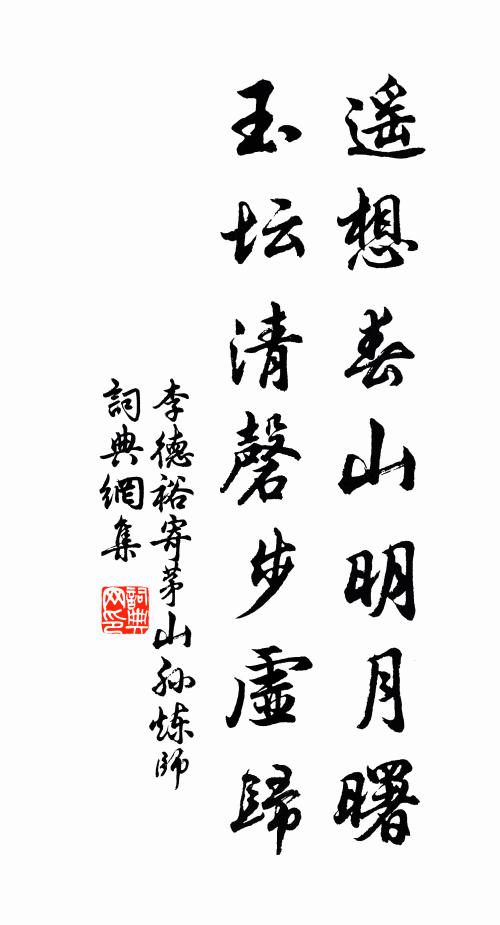 遥想春山明月曙
玉坛清磬步虚歸
李德裕寄茅山孙炼師
詞典網集
詞典网印